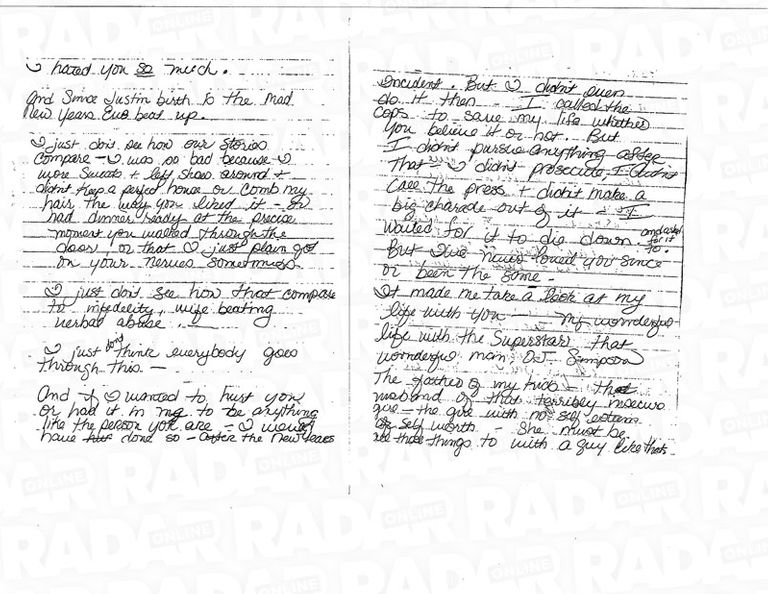 I hated you so much.
And since Justin birth is the mad
New Years Eve beat up.
I just don't see how our stories
compare - I was so bad because I
wore sweats + left shoes around +
didn't keep a perfect house or comb my
hair the way you liked it - or
had dinner ready at the precise
moment you walked through the
door or that I just plain got
on your nerves sometimes.
I just don't see how that compare
to infidelity, wife beating
verbal abuse.
I just dont think everybody goes
through this -
And if I wanted to hurt you
or had it in me to be anything
like the person you are - I would
have done so - after the New Years
incident. But I didn't even
do it then - I called the
cops to save my life whether
you believe it or not. But
I didn't pursue anything after
that - I didn't prosecute, I didn't
call the press + didn't make a
big charade out of it - I
waited for it to die down and asked for it to.
But I've never loved you since
or been the same -
It made me take a look at my
life with you - my wonderful
life with the superstar that
wonderful man O.J. Simpson
The father of my kids - that
husband of that terribly insecure
girl - the girl with no self esteem
or self worth - she must be
those things to with a guy like that.
RADAR ONLINE